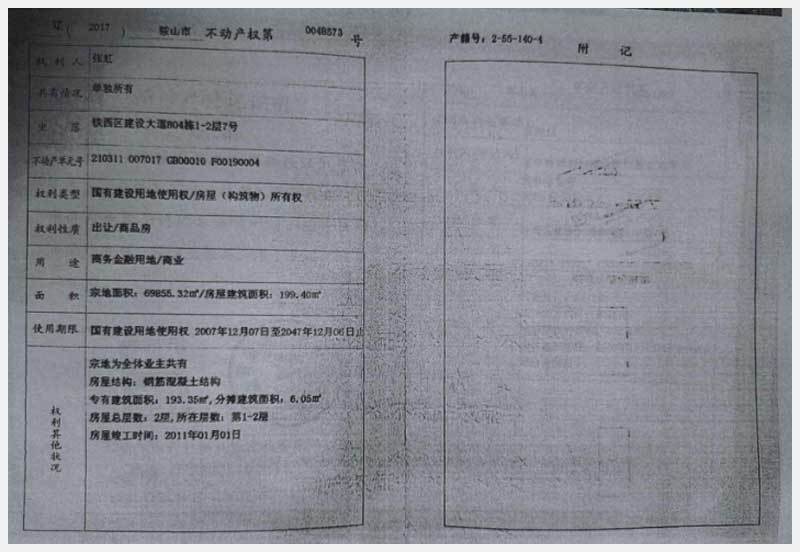 辽(2017)鞍山市不动产权第0048573号
权利人 张虹
共有情况 单独所有
坐落 铁西区建设大道804栋1-2层7号
不动产单元号 210311 007017 GB00010 F00190004
权利类型 国有建设用地使用权/房屋(构筑物)所有权
权利性质 出让/商品房
用途 商务金融用地/商业
面积 宗地面积:69855.32㎡/房屋建筑面积:199.40㎡
使用期限 国有建设用地使用权 2007年12月07日至2047年12月06日止
权利其他状况
宗地为全体业主共有
房屋结构:钢筋混凝土结构
专有建筑面积:193.35㎡,分摊建筑面积:6.05㎡
房屋总层数:2层,所在层数:第1-2层
房屋竣工时间:2011年01月01日
产籍号:2-55-140-4
附记